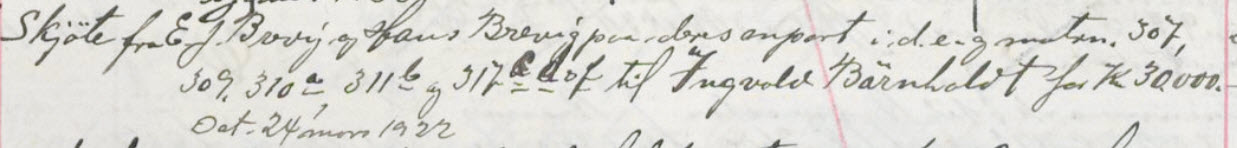 Skjöte fra E. J. Brevig og Hans Brevig paa deres anpart i d.e. g matrn. 307,
309, 310a, 311b og 317 til Ingvald Bärnholdt for Kr 30.000.-
Dat. 24 mars 1922